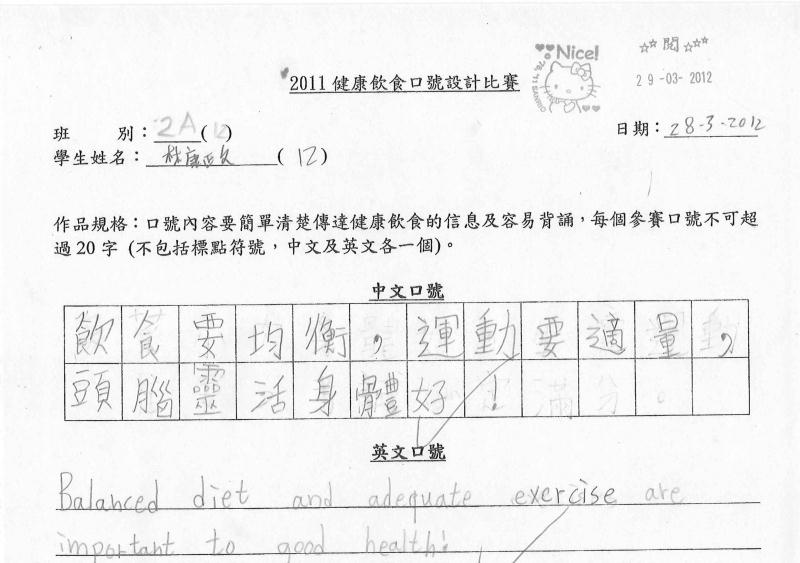 Nice!
☆☆ 閱 ☆☆☆
29-03-2012
2011 健康飲食口號設計比賽
班 別：2A (12)
日期：28-3-2012
學生姓名： (12)
作品規格：口號內容要簡單清楚傳達健康飲食的信息及容易背誦，每個參賽口號不可超
過 20 字 (不包括標點符號，中文及英文各一個)。
中文口號
飲食要均衡，運動要適量，
頭腦靈活身體好！
英文口號
Balanced diet and adequate exercise are
important to good health!